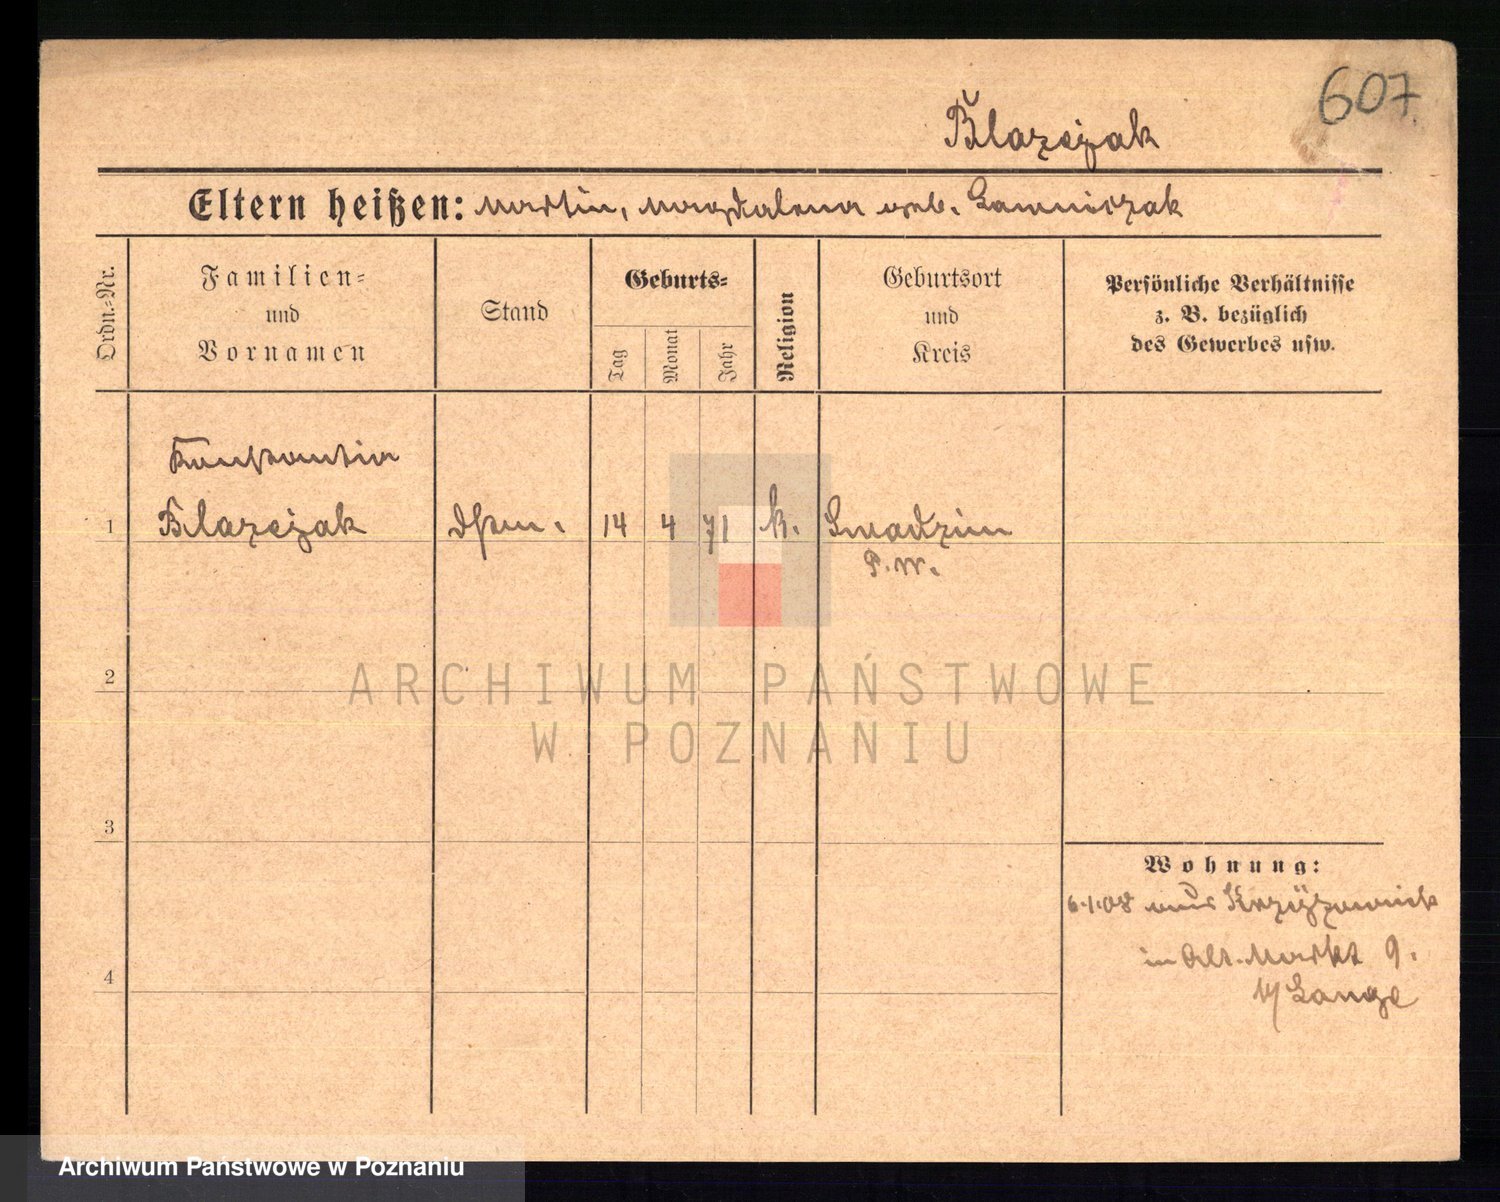 607
Blazejak
Eltern heißen: Martin, Magdalena geb.
Ordn.-Nr.
Familien-
und
Vornamen
Stand
Geburts-
Tag
Monat
Jahr
Religion
Geburtsort
und
Kreis
Persönliche Verhältnisse
z. B. bezüglich
des Gewerbes usw.
Konstantin
1 Blazejak 14 4 71 k.
P. W.
2
ARCHIWUM PAŃSTWOWE
W POZNANIU
3
Wohnung:
6.1.08 aus
in Alt. Markt 9.
4
b/ Lange
Archiwum Państwowe w Poznaniu